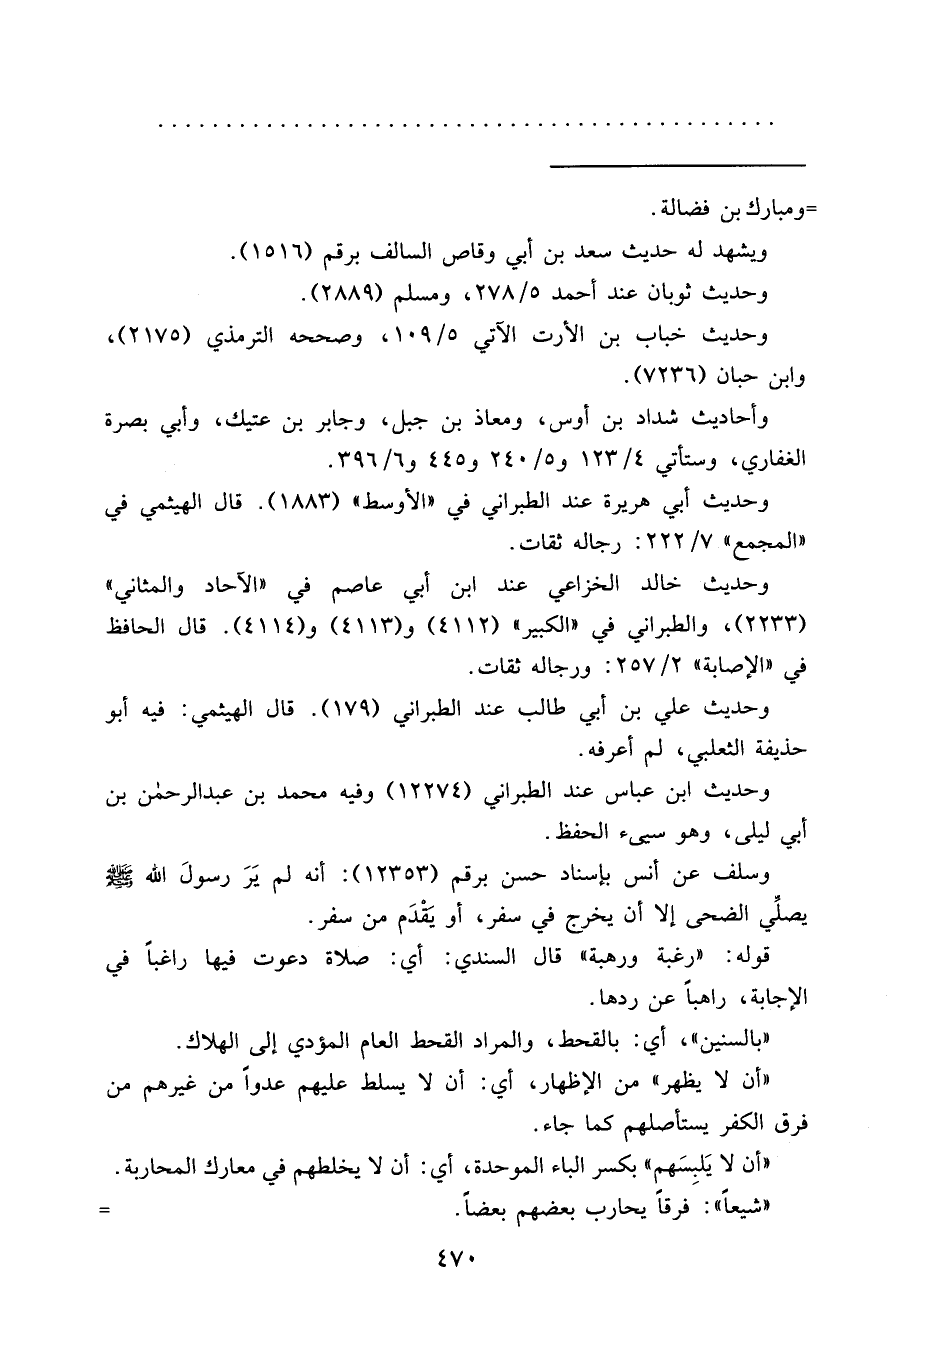 . . . . . . . . . . . . . . . . . . . . . . . . . . . . . . . . . . . . . . . . . . . . . .
=ومبارك بن فضالة.
ويشهد له حديث سعد بن أبي وقاص السالف برقم (١٥١٦).
وحديث ثوبان عند أحمد ٢٧٨/٥، ومسلم (٢٨٨٩).
وحديث خباب بن الأرت الآتي ١٠٩/٥، وصححه الترمذي (٢١٧٥)،
وابن حبان (٧٢٣٦).
وأحاديث شداد بن أوس، ومعاذ بن جبل، وجابر بن عتيك، وأبي بصرة
الغفاري، وستأتي ١٢٣/٤ و٢٤٠/٥ و٤٤٥ و٣٩٦/٦.
وحديث أبي هريرة عند الطبراني في «الأوسط» (١٨٨٣). قال الهيثمي في
«المجمع» ٢٢٢/٧: رجاله ثقات.
وحديث خالد الخزاعي عند ابن أبي عاصم في «الآحاد والمثاني»
(٢٢٣٣)، والطبراني في «الكبير» (٤١١٢) و(٤١١٣) و(٤١١٤). قال الحافظ
في «الإصابة» ٢٥٧/٢: ورجاله ثقات.
وحديث علي بن أبي طالب عند الطبراني (١٧٩). قال الهيثمي: فيه أبو
حذيفة الثعلبي، لم أعرفه.
وحديث ابن عباس عند الطبراني (١٢٢٧٤) وفيه محمد بن عبدالرحمٰن بن
أبي ليلى، وهو سيىء الحفظ.
وسلف عن أنس بإسناد حسن برقم (١٢٣٥٣): أنه لم يَرَ رسولَ الله ﷺ
يصلِّي الضحى إلا أن يخرج في سفر، أو يَقْدَم من سفر.
قوله: «رغبة ورهبة» قال السندي: أي: صلاة دعوت فيها راغباً في
الإجابة، راهباً عن ردها.
«بالسنين»، أي: بالقحط، والمراد القحط العام المؤدي إلى الهلاك.
«أن لا يظهر» من الإظهار، أي: أن لا يسلط عليهم عدواً من غيرهم من
فرق الكفر يستأصلهم كما جاء.
«أن لا يَلبِسَهم» بكسر الباء الموحدة، أي: أن لا يخلطهم في معارك المحاربة.
«شيعاً»: فرقاً يحارب بعضهم بعضاً. =
٤٧٠